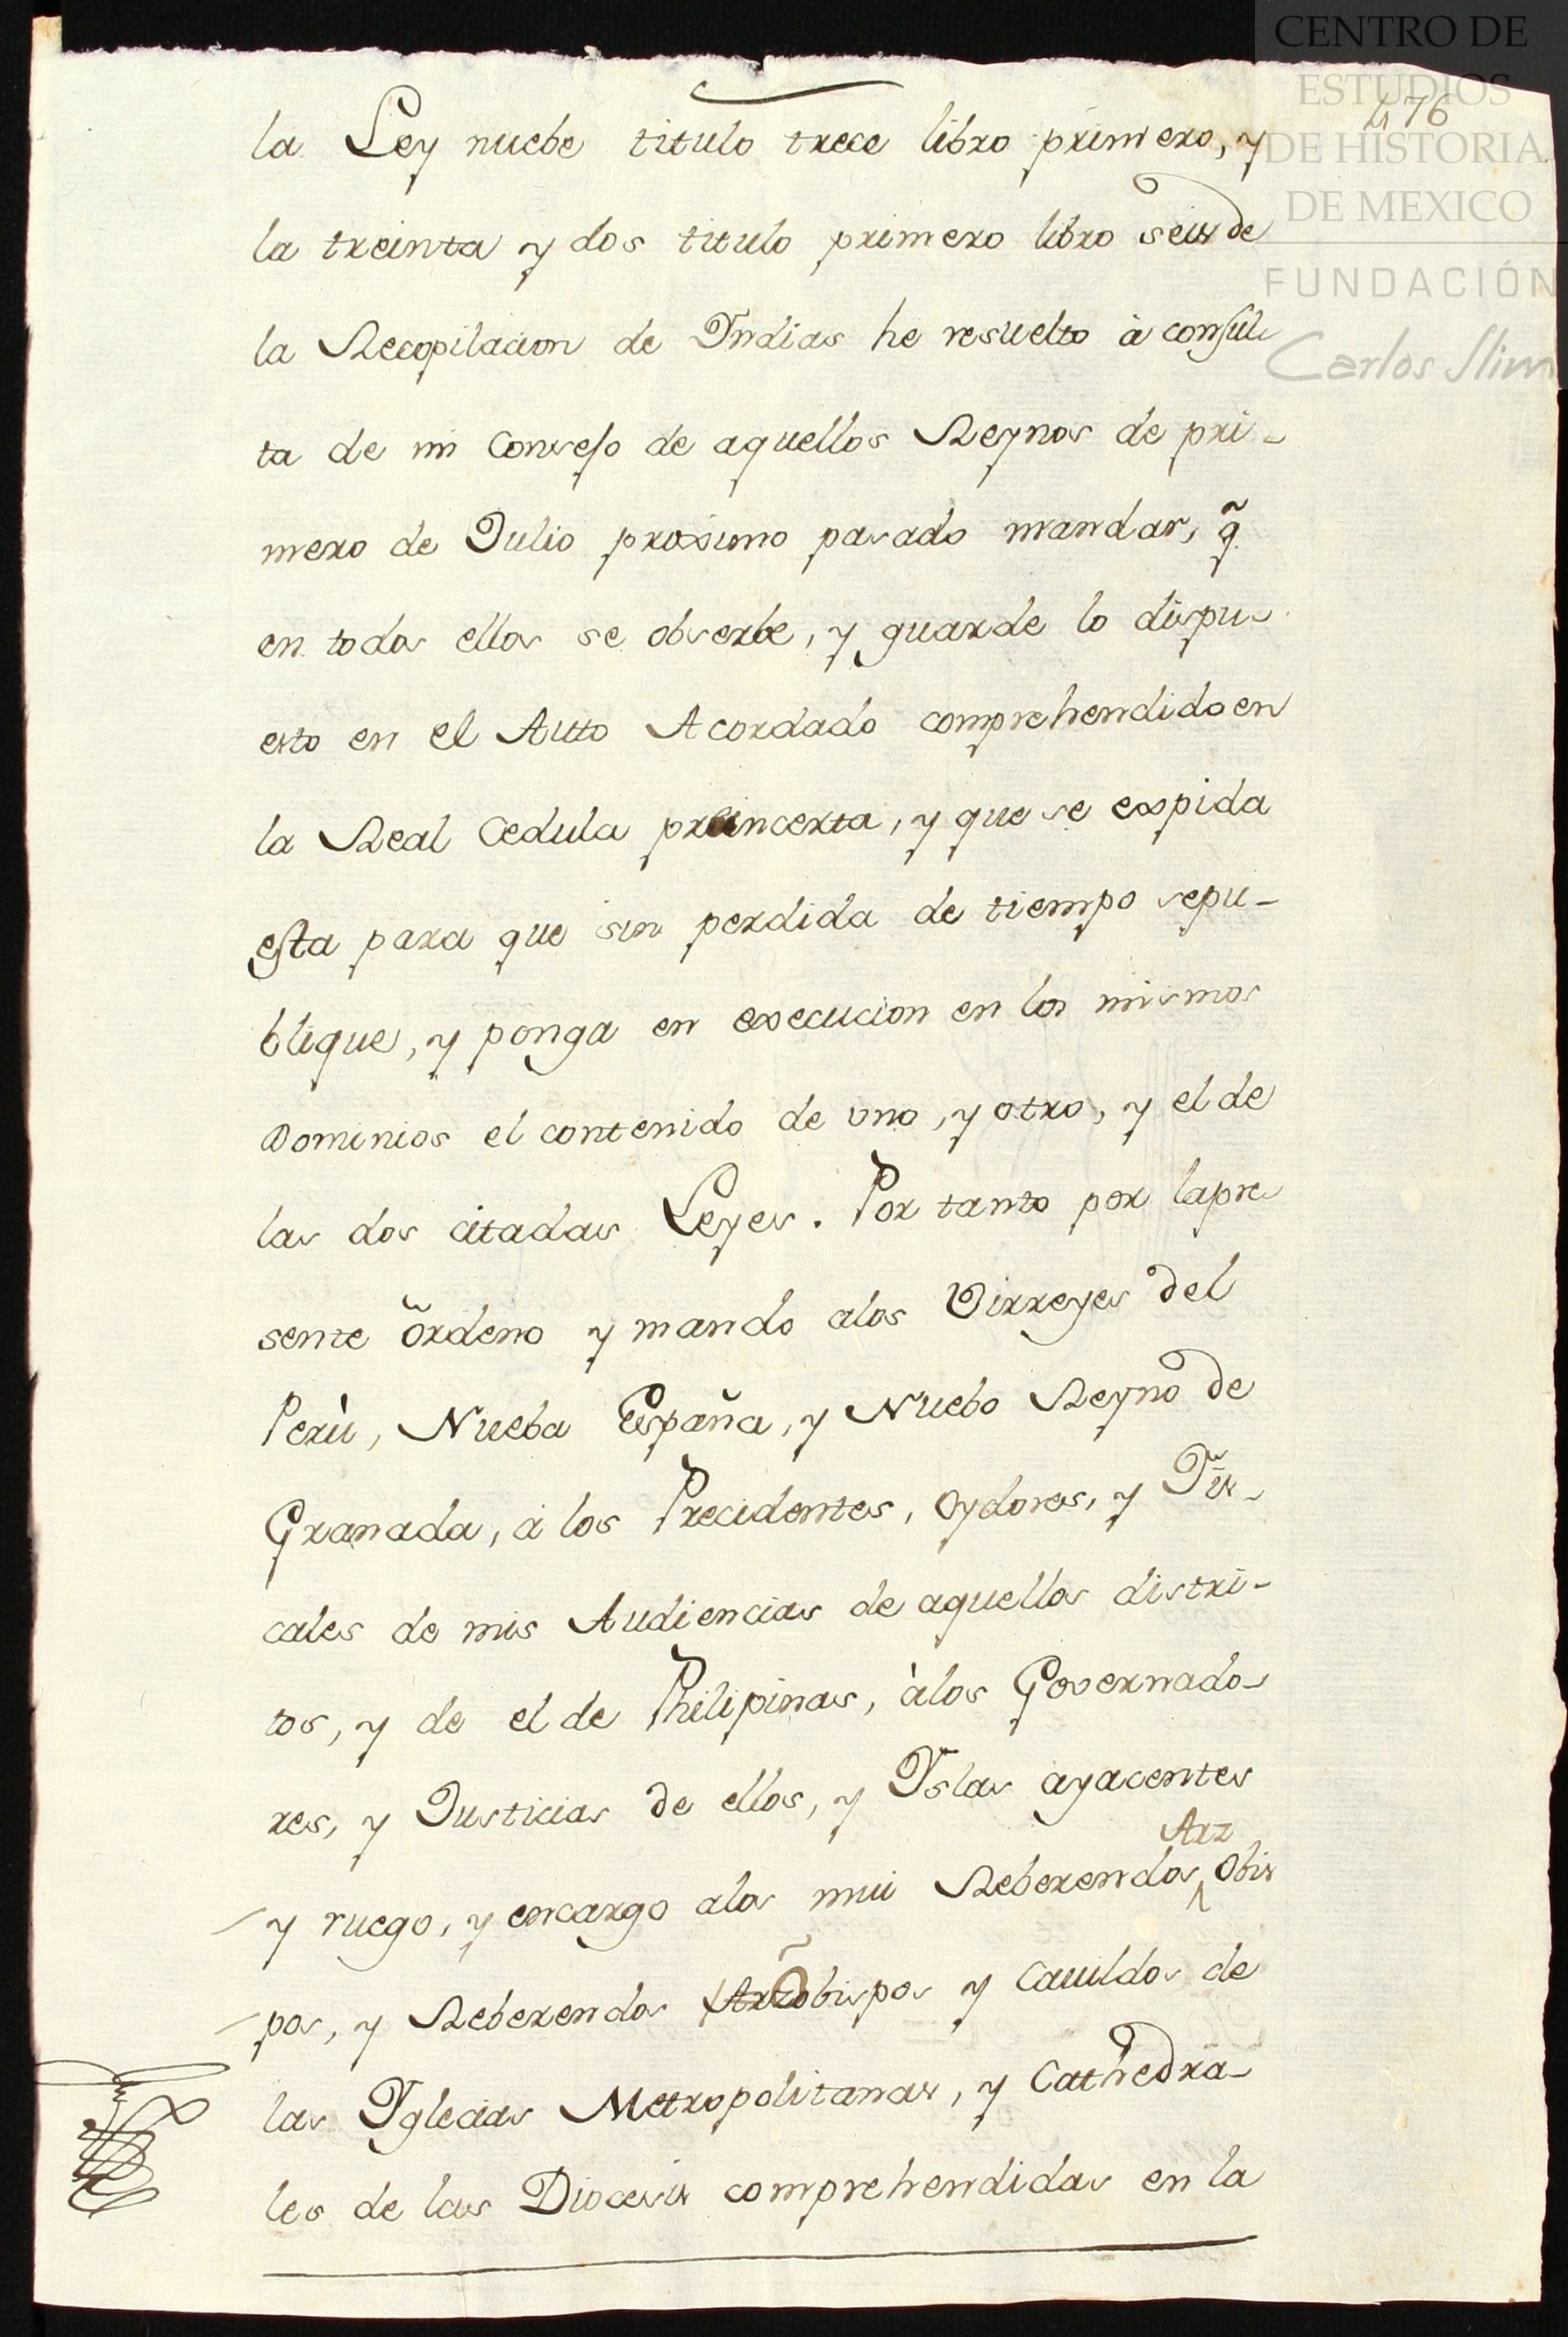 CENTRO DE
ESTUDIOS
DE HISTORIA
DE MEXICO
FUNDACIÓN
Carlos Slim
476
la Ley nuebe titulo trece libro primero, y
la treinta y dos titulo primero libro seis de
la Recopilacion de Indias he resuelto à consul
ta de mi Consejo de aquellos Reynos de pri-
mero de Julio proximo pasado mandar, q̃
en todos ellos se obserbe, y guarde lo dispu-
esto en el Autto Acordado comprehendido en
la Real Cedula preincerta, y que se expida
esta para que sin perdida de tiempo sepu-
blique, y ponga en execucion en los mismos
Dominios el contenido de uno, y otro, y el de
las dos citadas Leyes. Por tanto por lapre
sente õrdeno y mando alos Virreyes del
Perù, Nueba España, y Nuebo Reyno de
Granada, à los Precidentes, Oydores, y Fis-
cales de mis Audiencias de aquellos distri-
tos, y de el de Philipinas, àlos Governado-
res, y Justicias de ellos, y Yslas ayacentes
y ruego, y encargo alos mui Reberendos Arz Obis
pos, y Reberendos Arzobispos y Cauildos de
las Yglecias Metropolitanas, y Cathedra-
les de las Diocesis comprehendidas en la